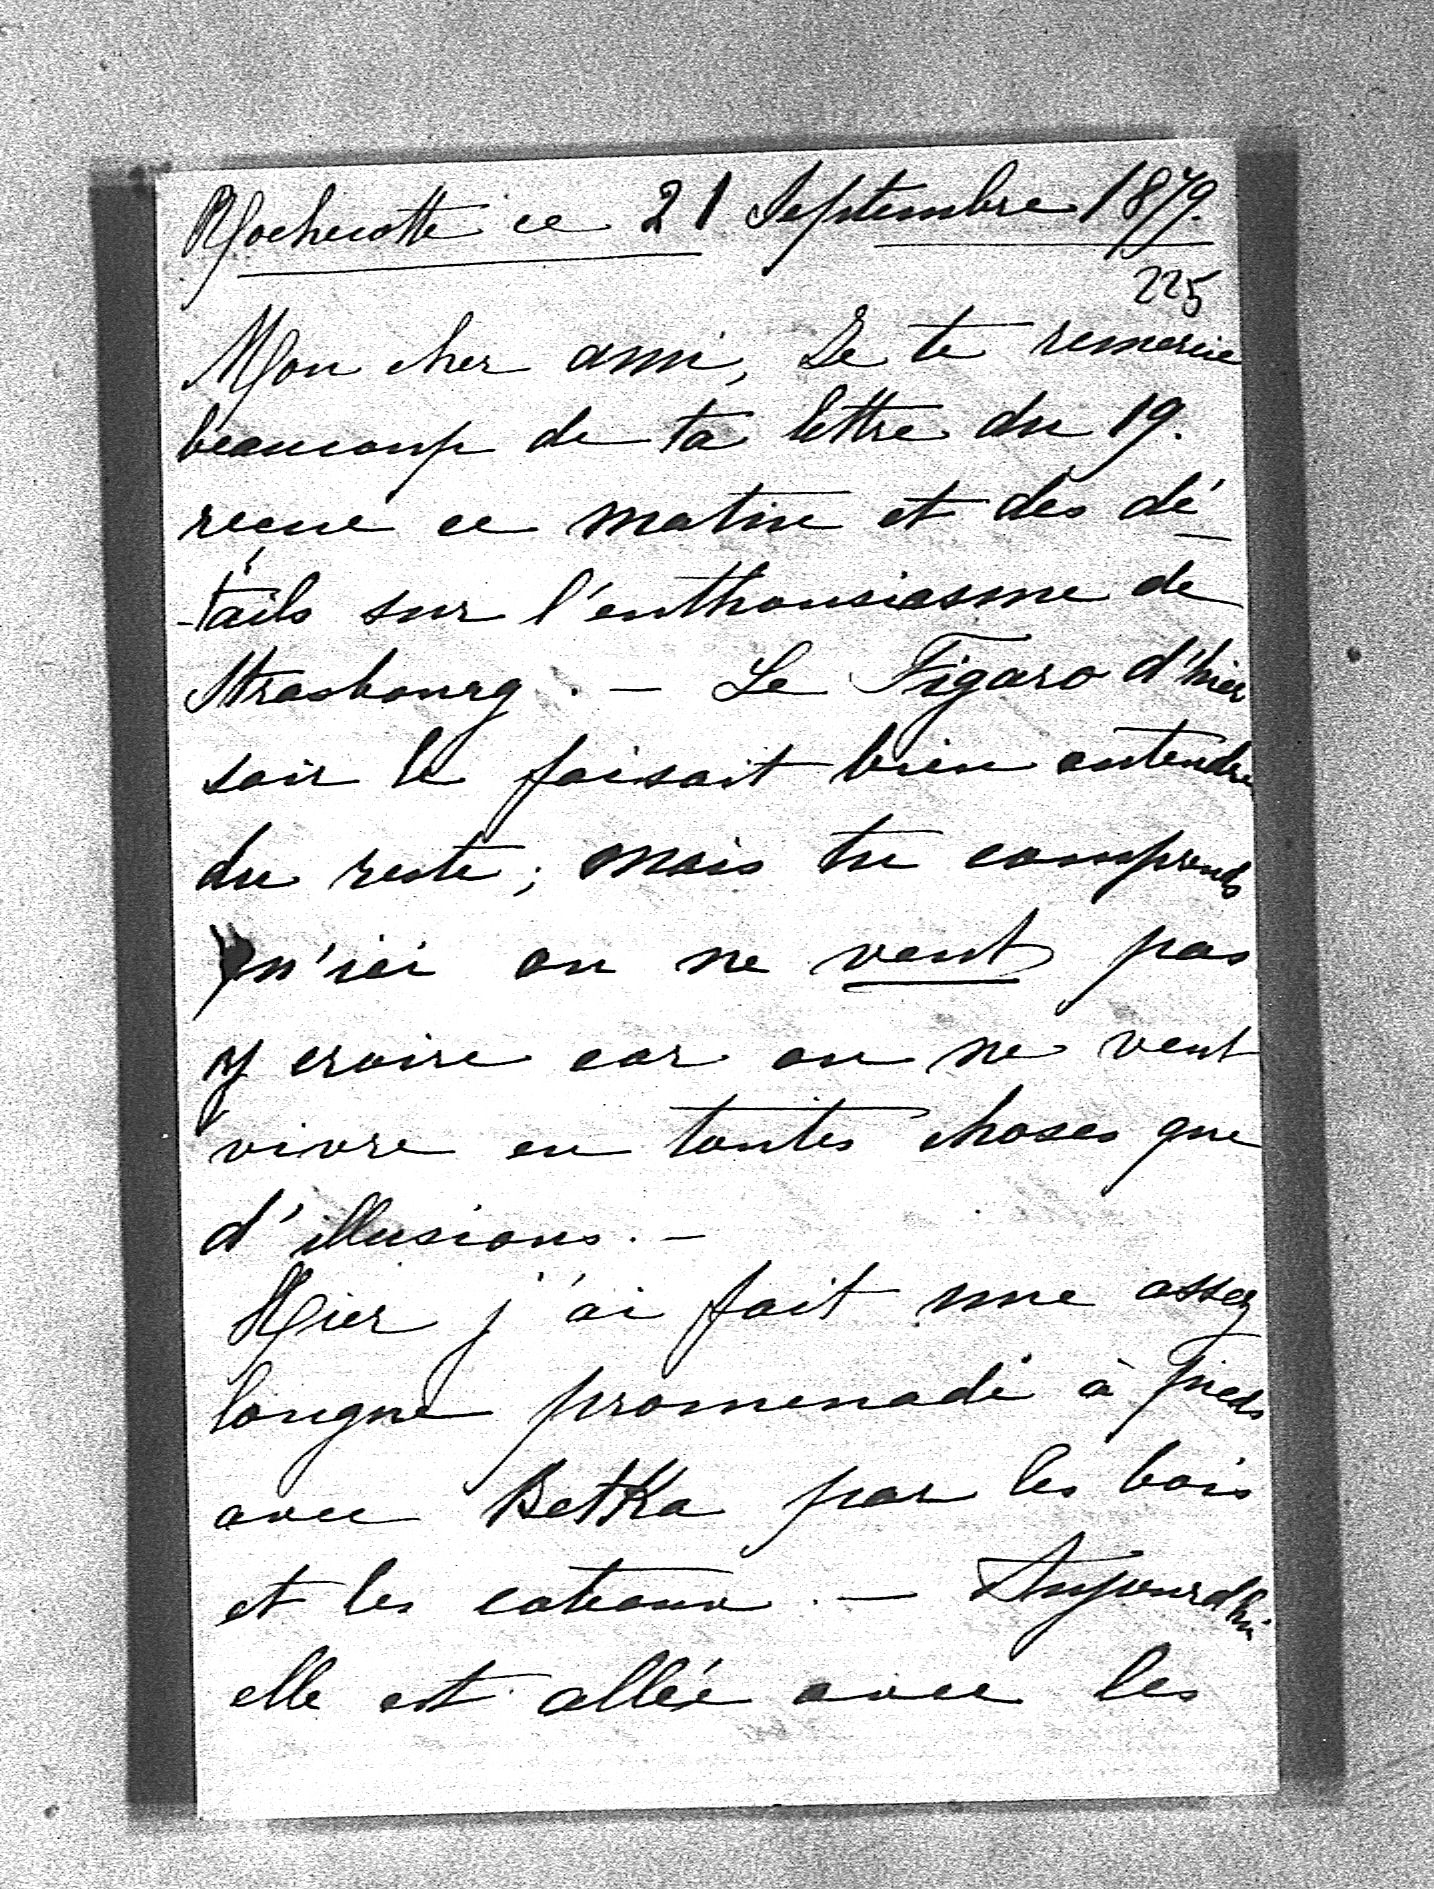 Rochecotte ce 21 Septembre 1879.
225
Mon cher ami, Je te remercie
beaucoup de ta lettre du 19.
reçue ce matin et des dé-
-tails sur l'enthousiasme de
Strasbourg. — Le Figaro d'hier
soir le faisait bien entendre
du reste; mais tu comprends
qu'ici on ne veut pas
y croire car on ne veut
vivre en toutes choses que
d'illusions. —
Hier j'ai fait une assez
longue promenade à pieds
avec Betka par les bois
et les coteaux. — Aujourdhui
elle est allée avec les